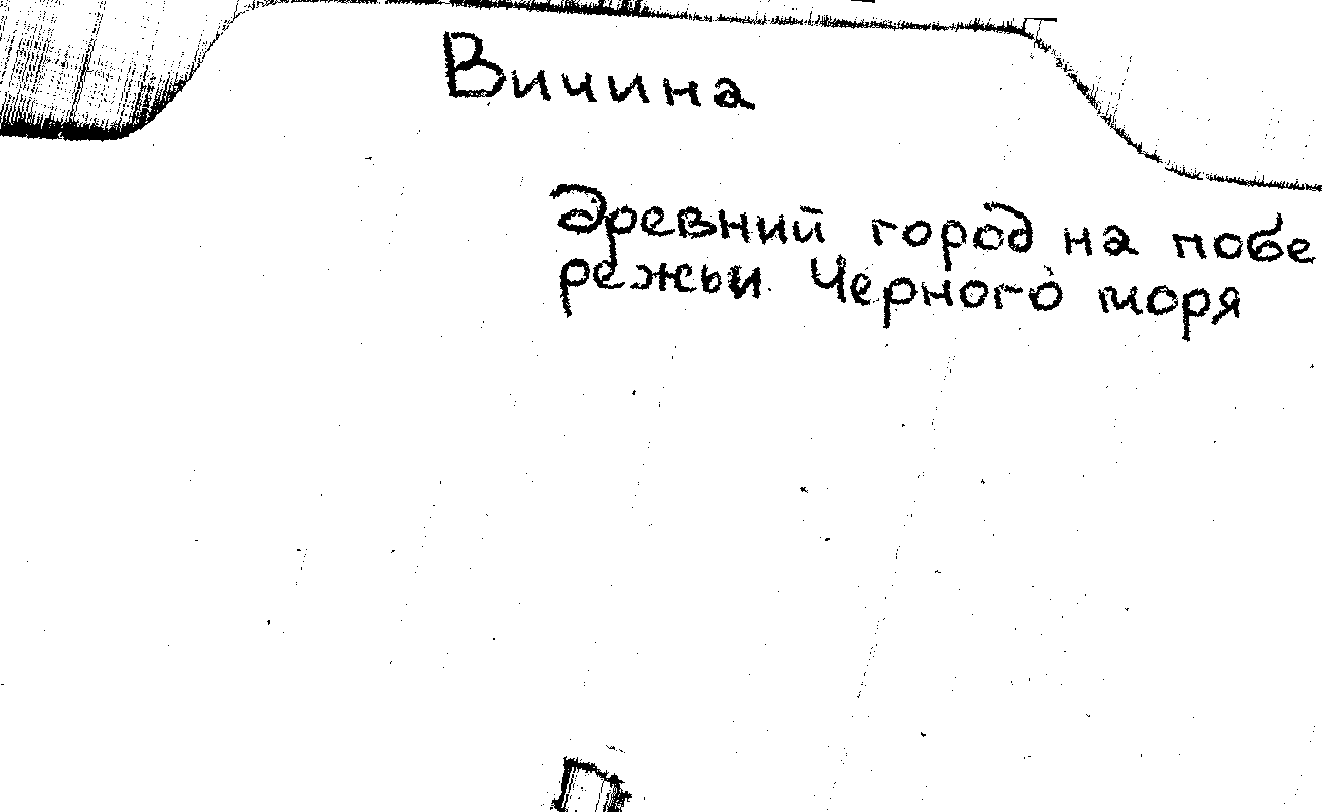 Вичина
древний город на побе
режьи Черного моря